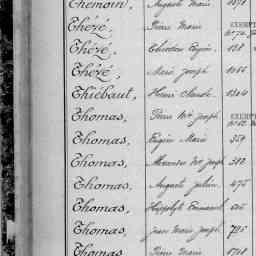 Thémoin, Auguste Marie 1078
Thézé, Pierre Marie EXEMPT
Thézé, Théodore Eugène 138
Thézé, Marie Joseph 1066
Thiébaut, Henri Claude 1304
Thomas, Pierre Me Joseph EXEMP
Thomas, Eugène Marie 359
Thomas, Alexandre Me Joseph 380
Thomas, Auguste Julien 475
Thomas, Hippolyte Emmanuel
Thomas, Jean Marie Joseph 795
Thomas, Pierre Marie